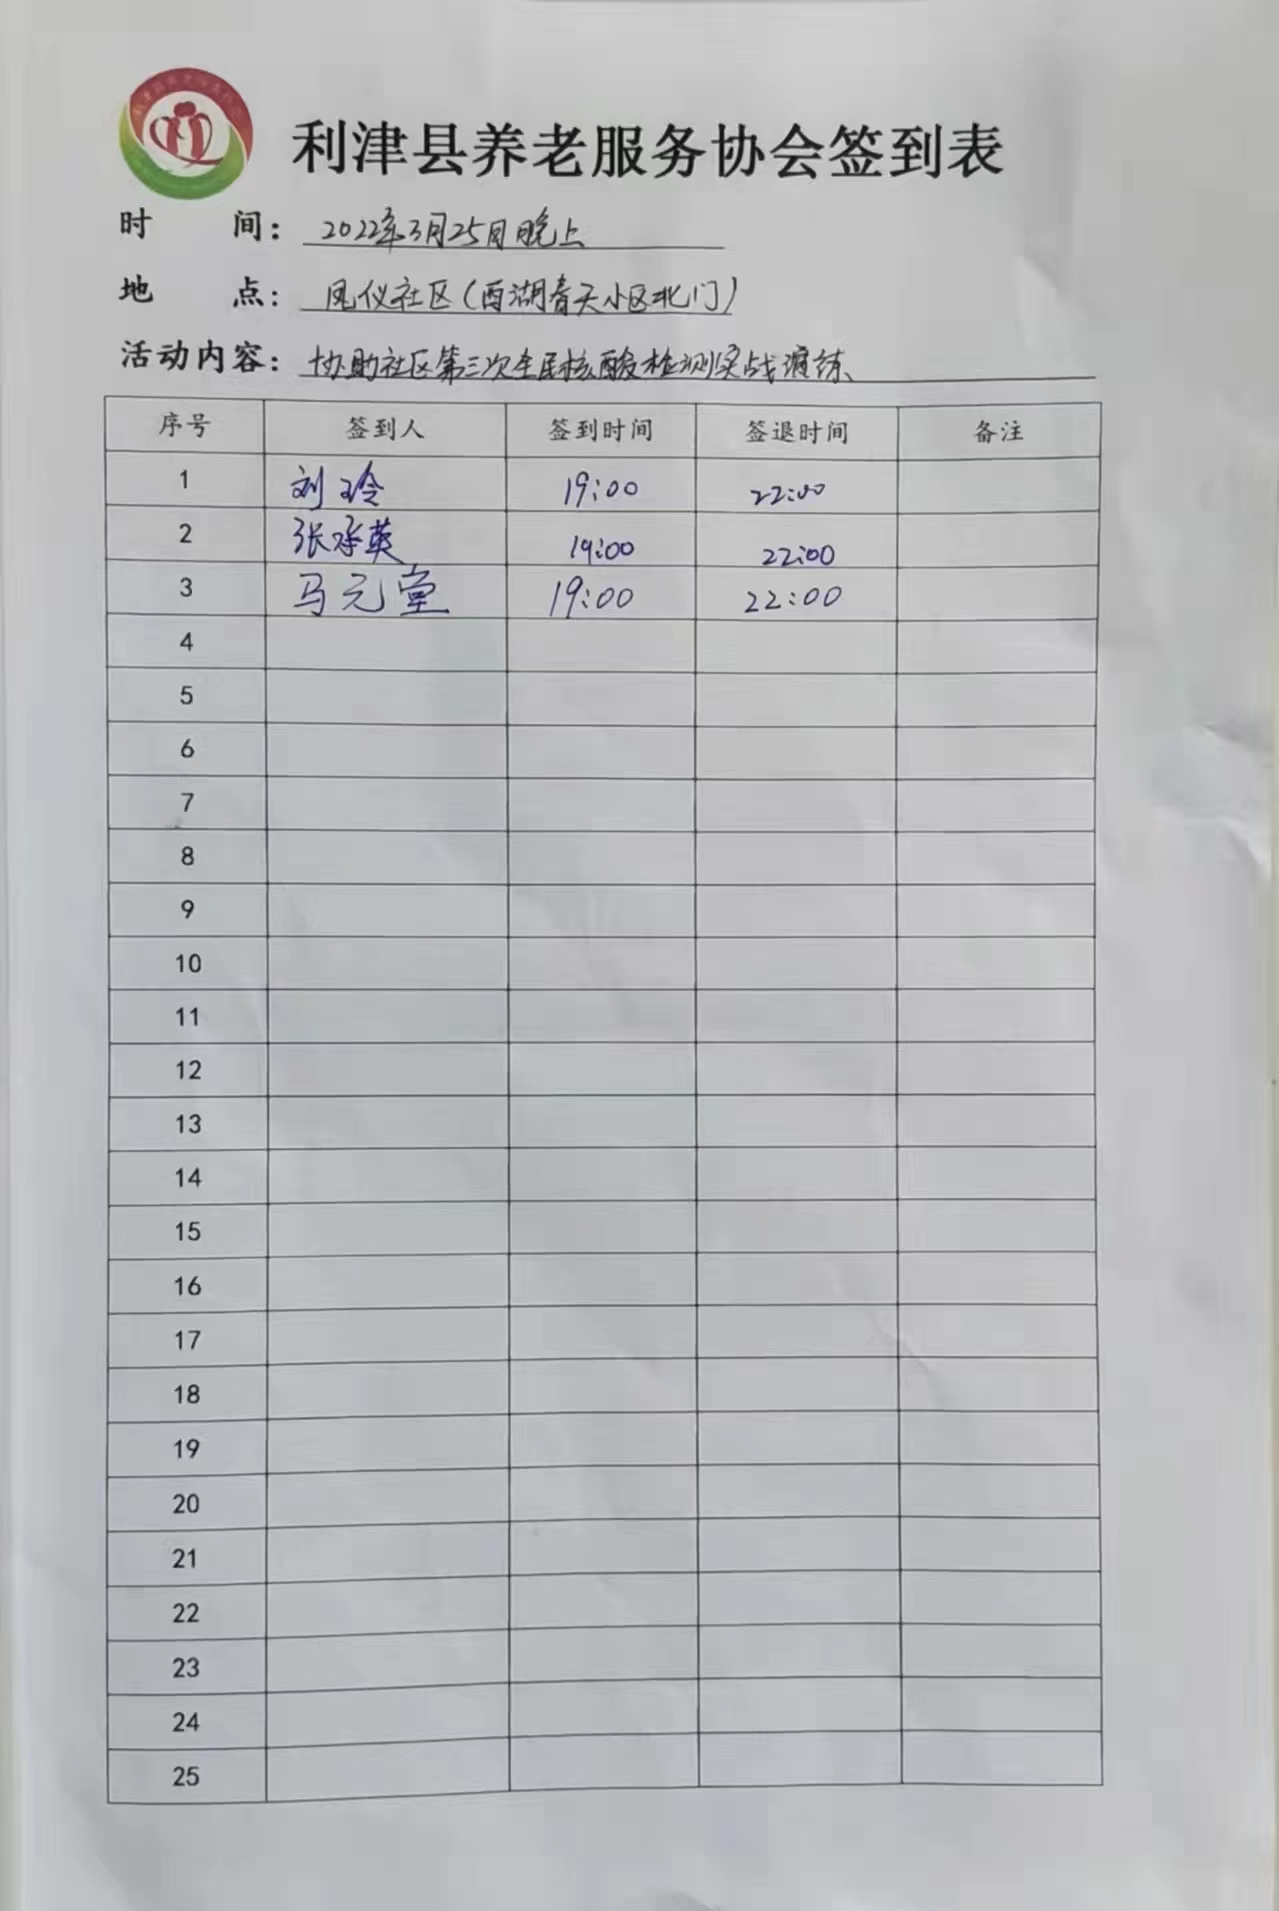 利津县养老服务协会签到表
时 间: 2022年3月25日晚上
地 点: 凤仪社区(西湖春天小区北门)
活动内容: 协助社区第三次全民核酸检测实战演练
序号 签到人 签到时间 签退时间 备注
1 刘玲 19:00 22:00
2 张承英 19:00 22:00
3 马元堂 19:00 22:00
4
5
6
7
8
9
10
11
12
13
14
15
16
17
18
19
20
21
22
23
24
25